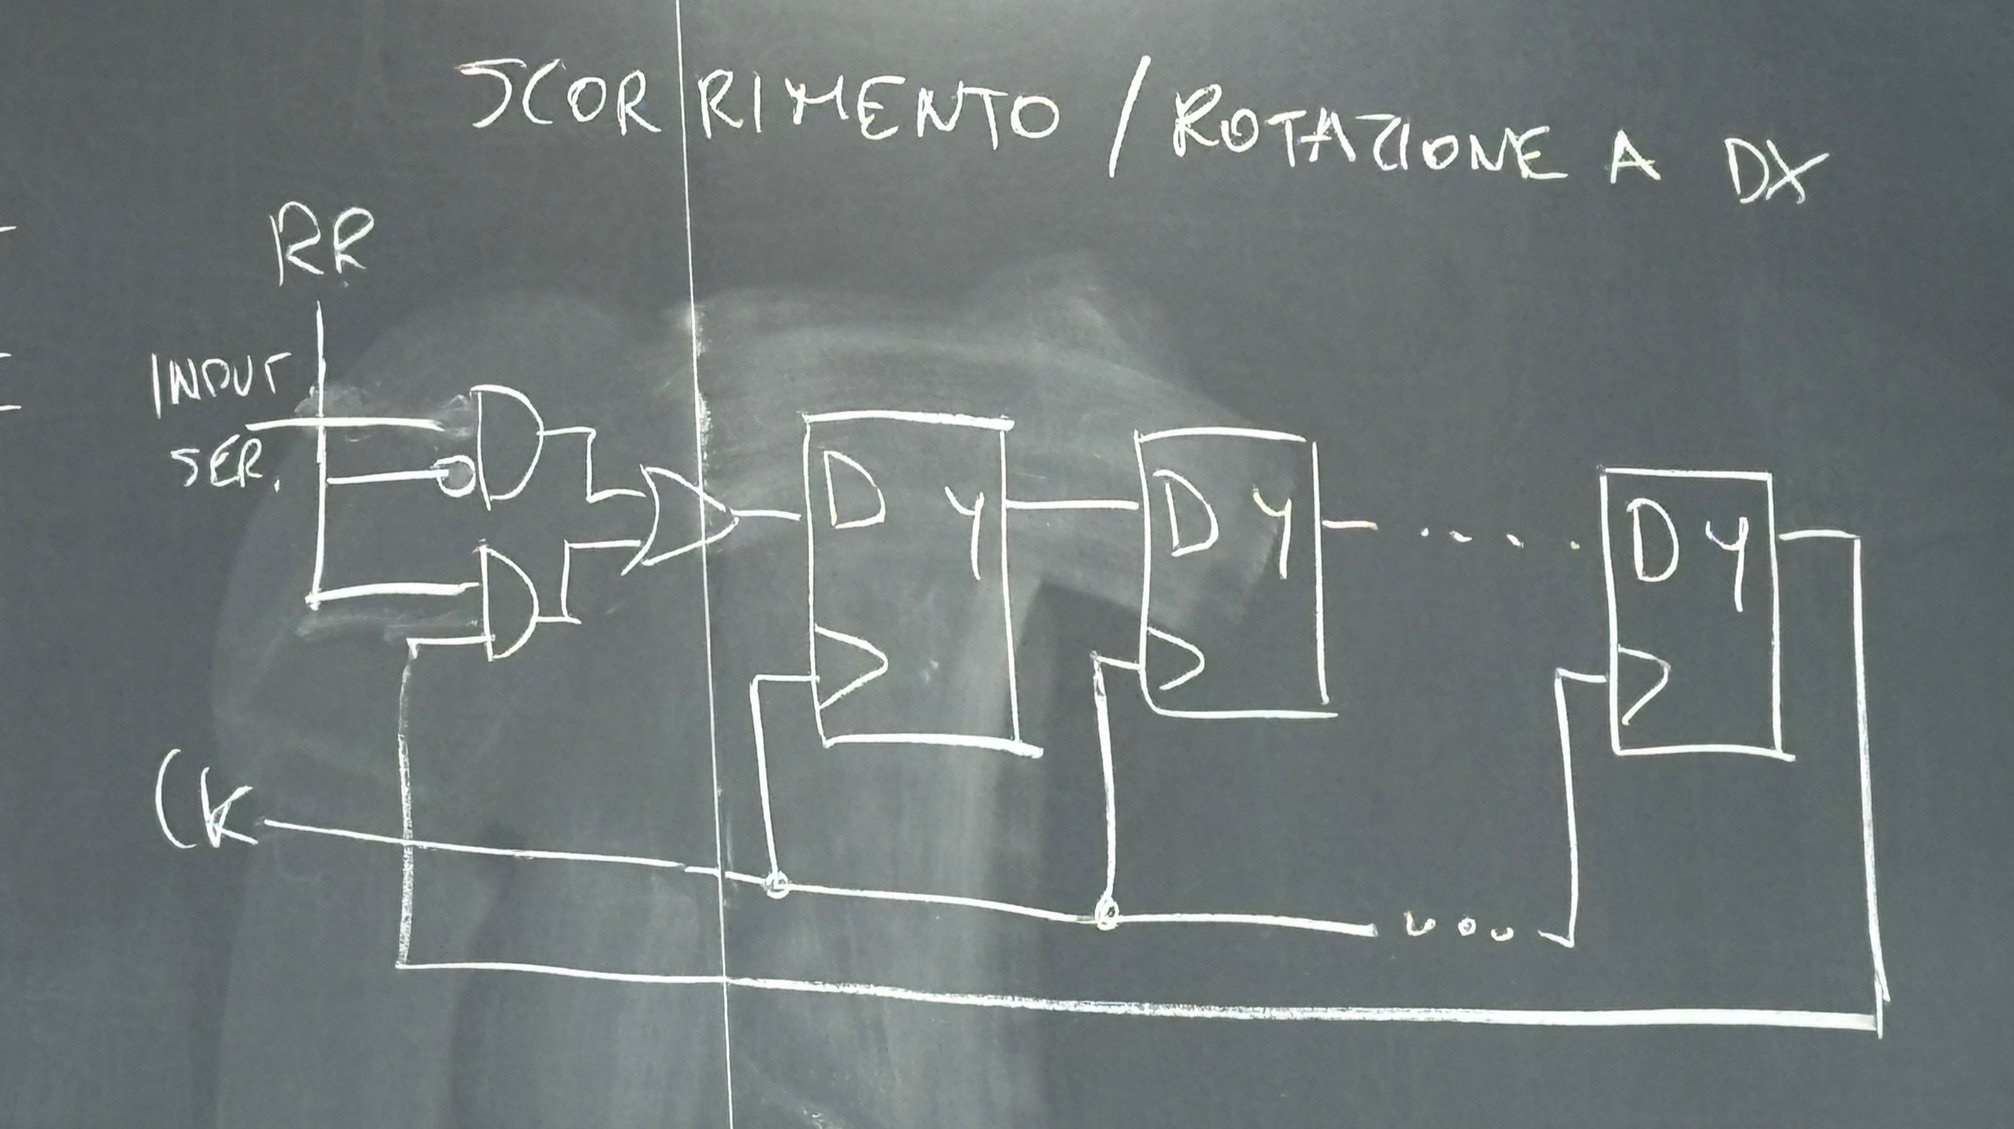 SCORRIMENTO / ROTAZIONE A DX
RR
INPUT
SER.
D Y
D Y
....
D Y
CK
....